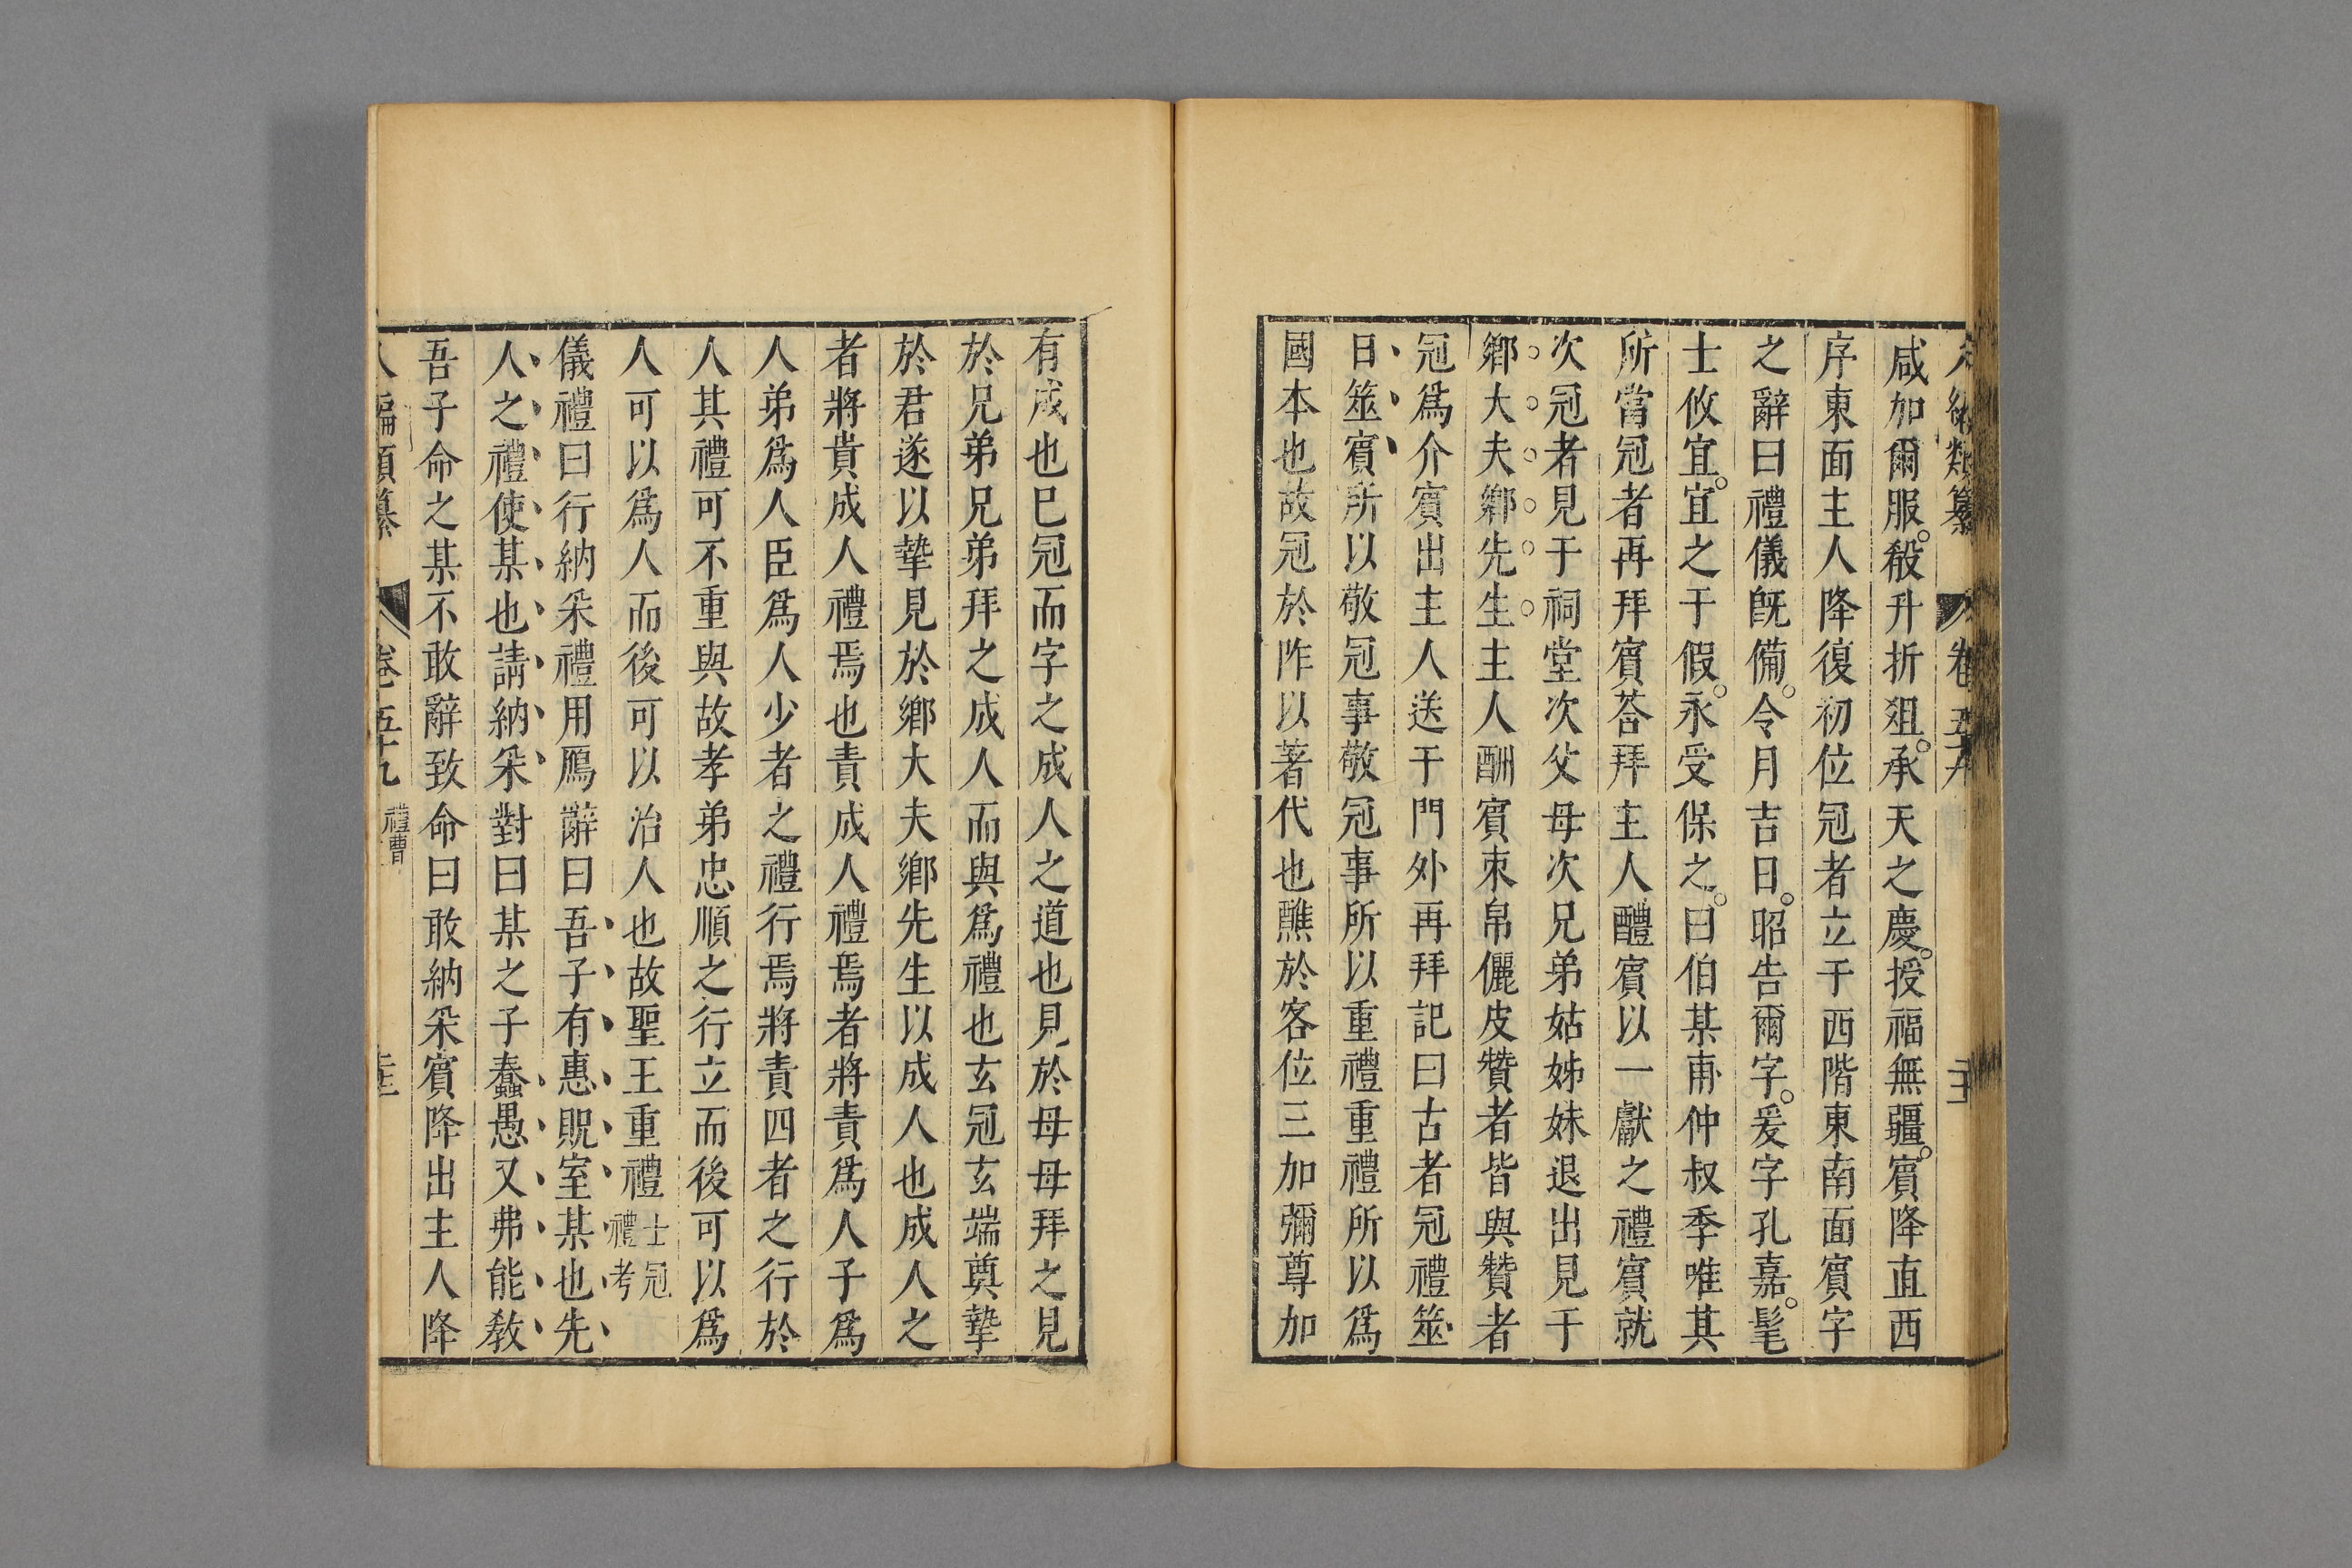 八編類纂 卷五十九
咸加爾服殽升折俎承天之慶授福無疆賓降直西
序東面主人降復初位冠者立于西階東南面賓字
之辭曰禮儀旣備令月吉日昭告爾字爰字孔嘉髦
士攸宜宜之于假永受保之曰伯某甫仲叔季唯其
所當冠者再拜賓荅拜主人醴賓以一獻之禮賓就
次冠者見于祠堂次父母次兄弟姑姊妹退出見于
鄉大夫鄉先生主人酬賓束帛儷皮贊者皆與贊者
冠爲介賓出主人送于門外再拜記曰古者冠禮筮
日筮賓所以敬冠事敬冠事所以重禮重禮所以爲
國本也故冠於阼以著代也醮於客位三加彌尊加
有成也巳冠而字之成人之道也見於母母拜之見
於兄弟兄弟拜之成人而與爲禮也玄冠玄端奠摯
於君遂以摯見於鄉大夫鄉先生以成人也成人之
者將責成人禮焉也責成人禮焉者將責爲人子爲
人弟爲人臣爲人少者之禮行焉將責四者之行於
人其禮可不重與故孝弟忠順之行立而後可以爲
人可以爲人而後可以治人也故聖王重禮士冠禮考
儀禮曰行納采禮用鴈辭曰吾子有惠貺室某也先
人之禮使某也請納采對曰某之子蠢愚又弗能敎
吾子命之某不敢辭致命曰敢納采賓降出主人降
八編類纂 卷五十九 禮曹